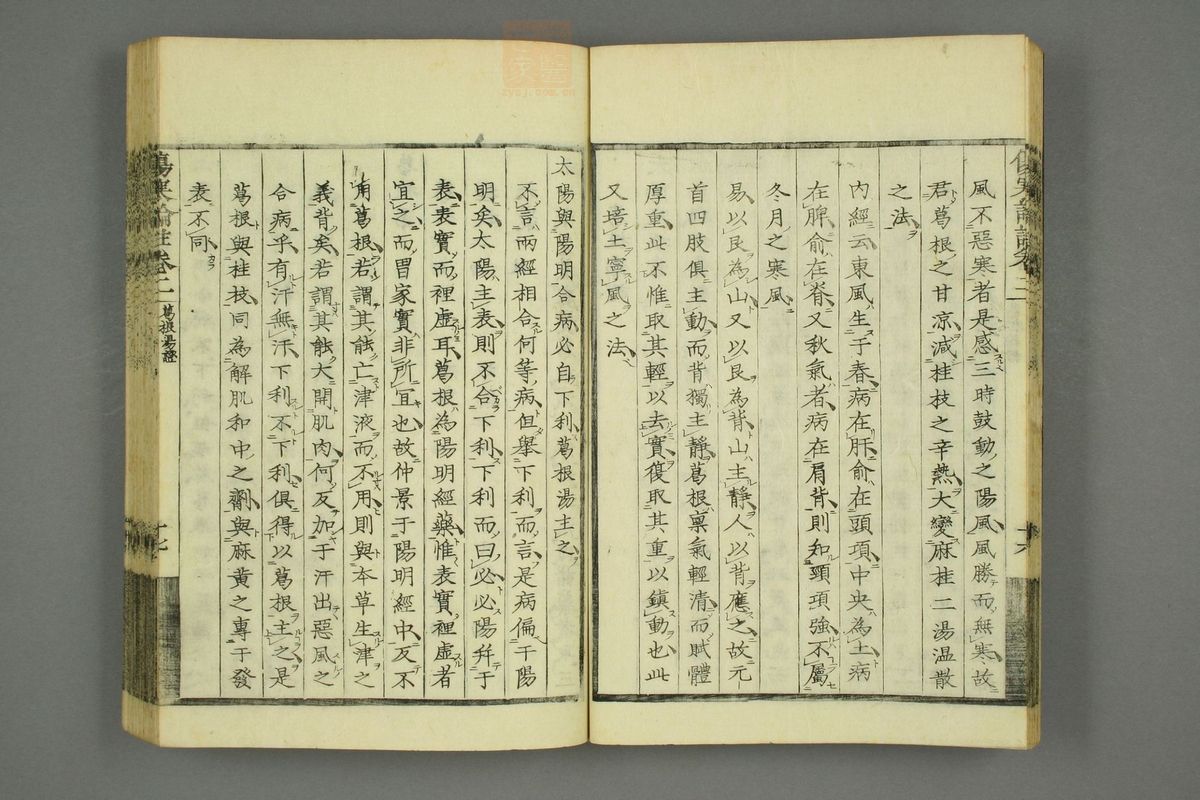 風不惡寒者是感三時鼓動之陽風風勝而無寒故
君葛根之甘凉減桂枝之辛熱大變麻桂二湯温散
之法
內經云東風生于春病在肝俞在頭項中央為土病
在脾俞在脊又秋氣者病在肩背則知頸項強不屬
冬月之寒風
易以艮為山又以艮為背山主靜人以背應之故元
首四肢俱主動而背獨主靜葛根稟氣輕清而賦體
厚重此不惟取其輕以去實復取其重以鎮動也此
又培土寧風之法
太陽與陽明合病必自下利葛根湯主之
不言兩經相合何等病但舉下利而言是病偏于陽
明矣太陽主表則不合下利下利而曰必必陽并于
表表實而裡虛耳葛根為陽明經藥惟表實裡虛者
宜之而胃家實非所宜也故仲景于陽明經中反不
用葛根若謂其能亡津液而不用則與本草生津之
義背矣若謂其能大開肌肉何反加于汗出惡風之
合病乎有汗無汗下利不下利俱得以葛根主之是
葛根與桂枝同為解肌和中之劑與麻黃之專于發
表不同
傷寒論註卷二 葛根湯證
zycj.com.cn